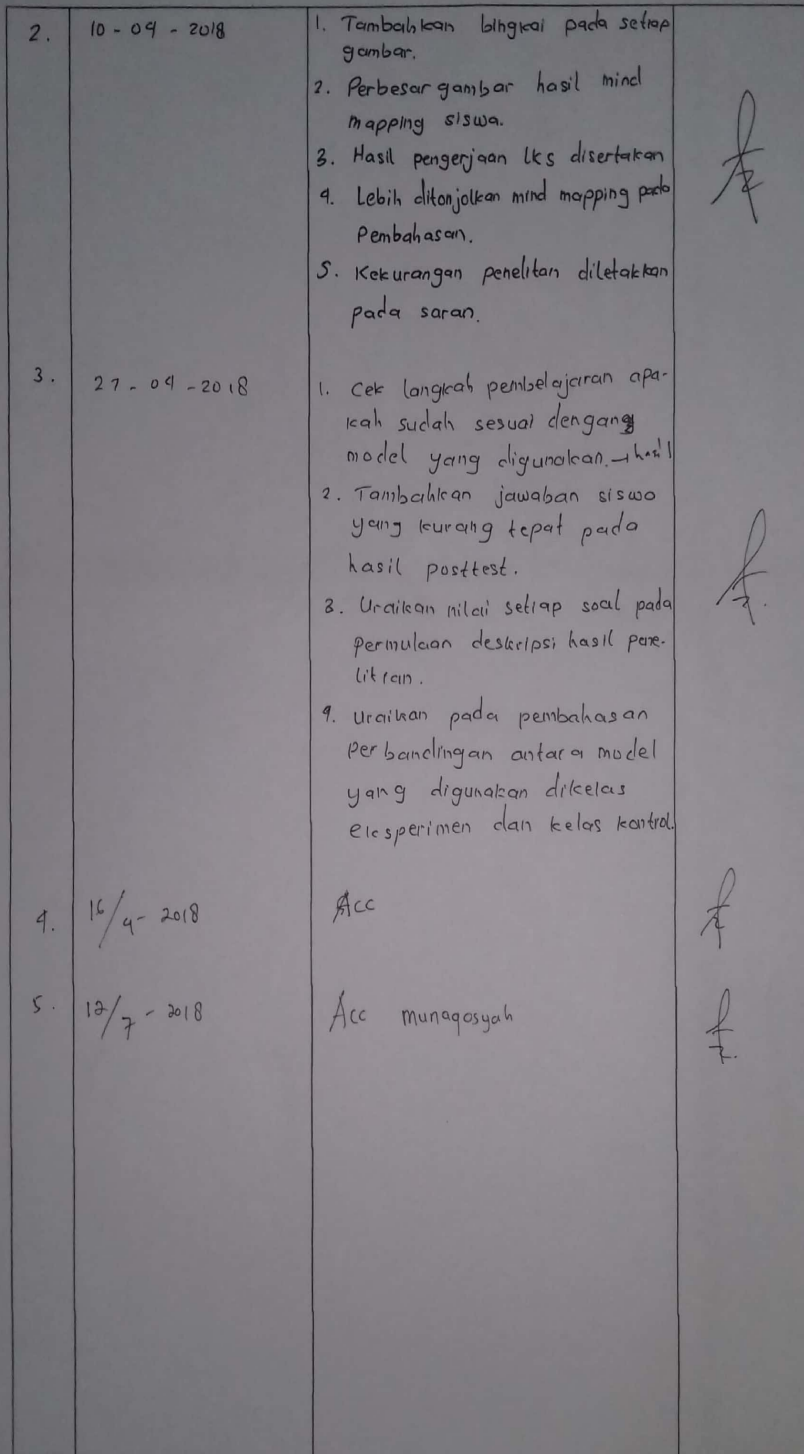 2. 10 - 04 - 2018 1. Tambahkan bingkai pada setiap
gambar.
2. Perbesar gambar hasil mind
mapping siswa.
3. Hasil pengerjaan lks disertakan
4. Lebih ditonjolkan mind mapping pada
Pembahasan.
5. Kekurangan penelitan diletakkan
pada saran.
3. 27 - 04 - 2018 1. Cek langkah pembelajaran apa-
kah sudah sesuai dengang
model yang digunakan. → hasil
2. Tambahkan jawaban siswa
yang kurang tepat pada
hasil posttest.
3. Uraikan nilai setiap soal pada
permulaan deskripsi hasil pene-
litian.
4. Uraikan pada pembahasan
Perbandingan antara model
yang digunakan dikelas
eksperimen dan kelas kontrol.
4. 16/4 - 2018 Acc
5. 12/7 - 2018 Acc munaqosyah